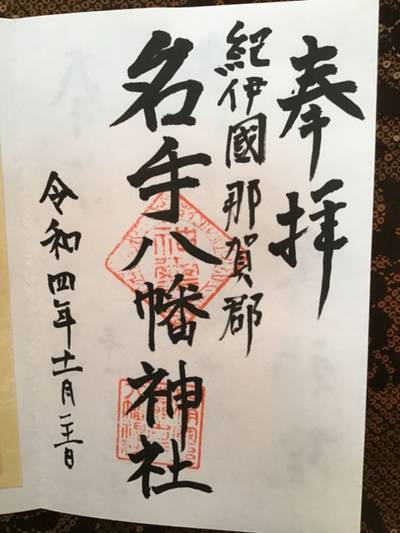 奉拝
紀伊國那賀郡
名手八幡神社
令和四年十一月